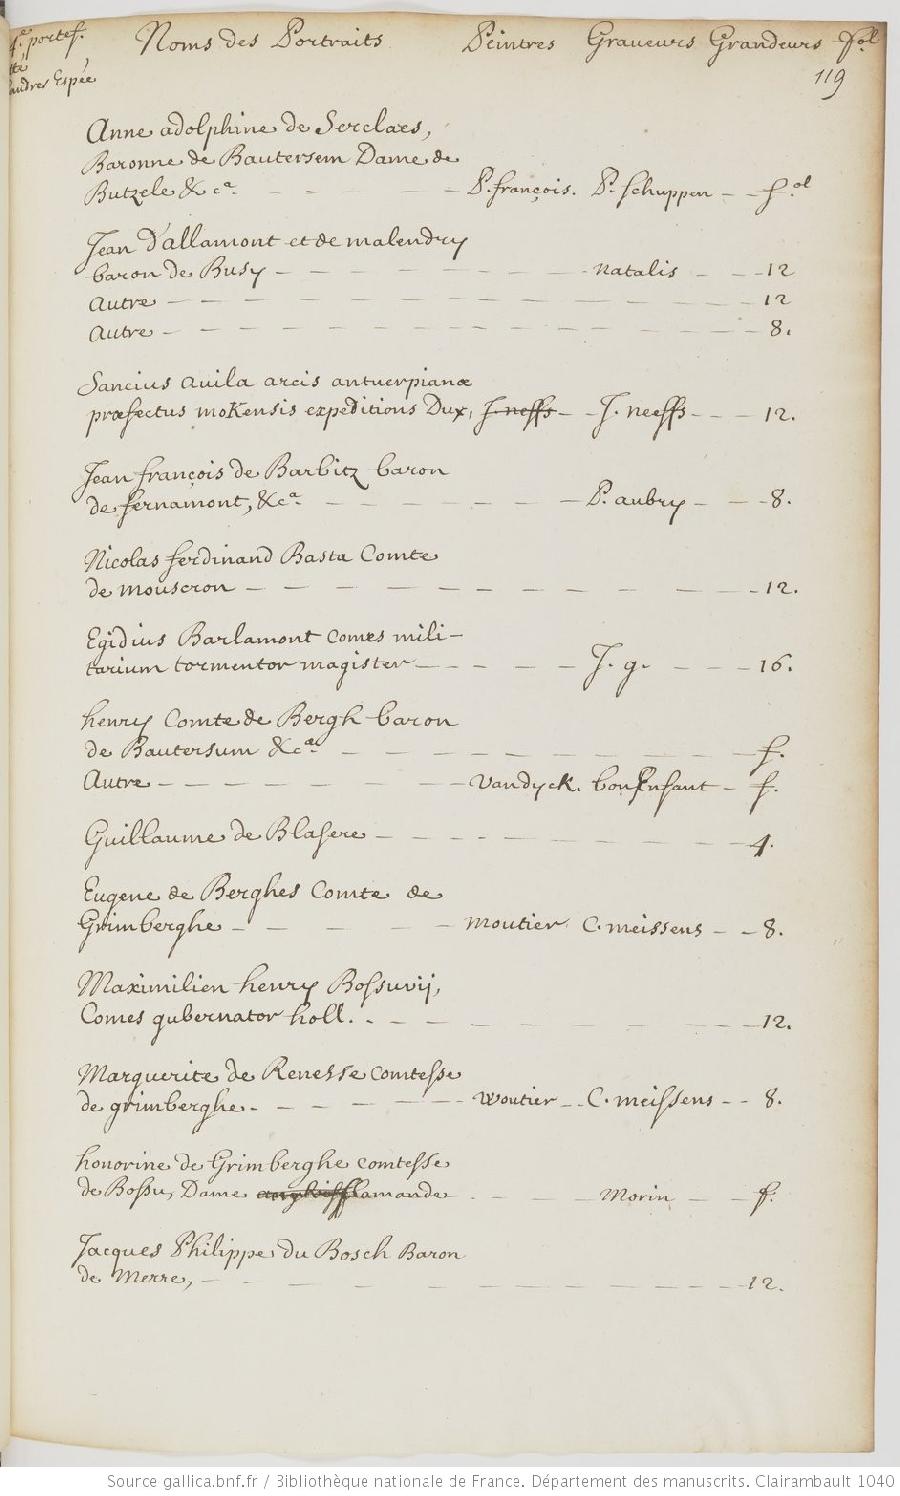 4.e portef. Noms des Portraits Peintres Graveurs Grandeurs fol
andres Espée 119
Anne adolphine de Serclaes,
Baronne de Bautersem Dame de
Butzele &ca. P. françois. P. schuppen fol
Jean D'allamont et de malendry
baron de Busy natalis 12
Autre 12
Autre 8.
Sancius avila arcis antuerpianæ
præfectus moKensis expeditions Dux, J. neffs J. neeffs 12.
Jean françois de Barbitz baron
de fernamont, &ca. P. aubry 8.
Nicolas ferdinand Basta Comte
de mouscron 12.
Egidius Barlamont comes mili-
tarium tormentor magister J. g. 16.
henry Comte de Bergh baron
de Bautersum &ca. f.
Autre Vandyck. bonEnfant f.
Guillaume de Blasere 4.
Eugene de Berghes Comte de
Grimberghe moutier C. meissens 8.
Maximilien henry Bossuvij,
Comes gubernator holl. 12.
Marguerite de Renesse comtesse
de grimberghe woutier C. meissens 8.
honorine de Grimberghe comtesse
de Bossu, Dame flamande Morin f.
Jacques Philippe du Bosch Baron
de Merre, 12.
Source gallica.bnf.fr / Bibliothèque nationale de France. Département des manuscrits. Clairambault 1040